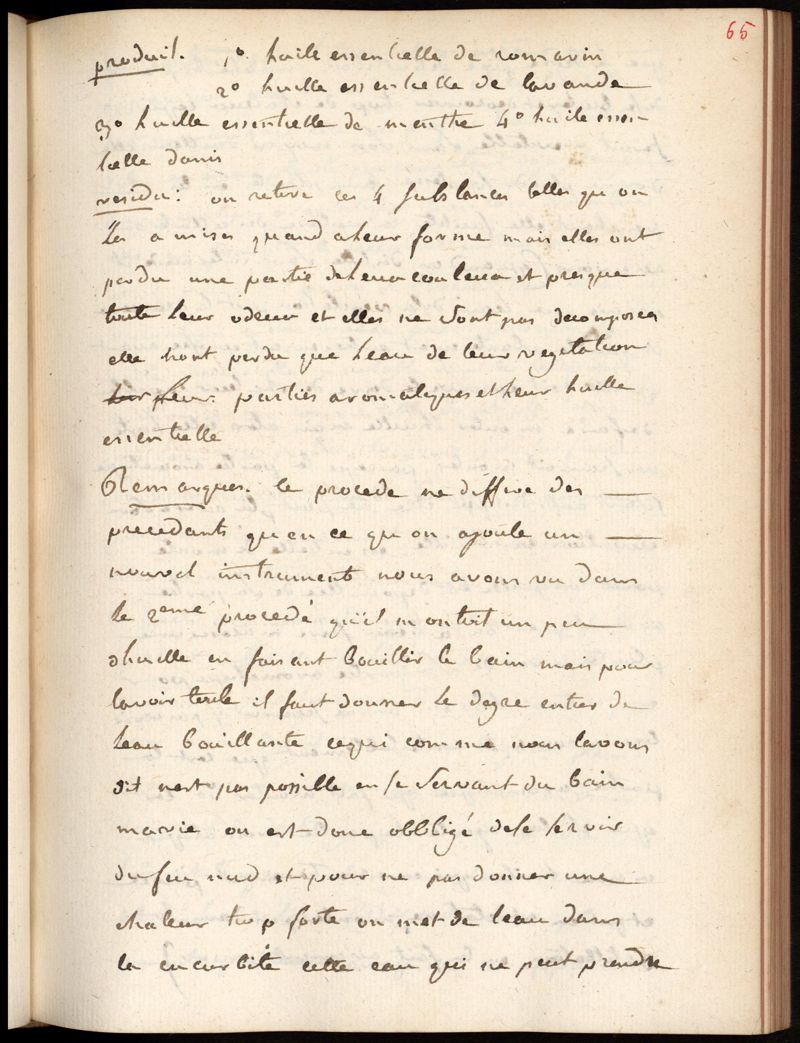 65
produit. 1º huile essentielle de romarin
2º huille essentielle de lavande
3º huille essentielle de menthe 4º huile essen-
tielle danis
residu: on retire ces 4 substances telles quon
les a mises quand aleur forme mais elles ont
perdu une partie deleur couleur et presque
toute leur odeur et elles ne sont pas decomposees
elle nont perdu que leau de leur vegetation
leur parties aromatiques et leur huille
essentielle
Remarques. le procede ne differe des
precedants quen ce quon ajoute un
nouvel instrument nous avons vu dans
le 2eme procedé quil montoit un peu
dhuille en faisant bouillir le bain mais pour
lavoir toute il faut donner le degre entier de
leau bouillante cequi comme nous lavons
dit nest pas possible en se servant du bain
marie on est donc obbligé dese servoir
du feu nud et pour ne pas donner une
chaleur trop forte on met de leau dans
la cucurbite cette eau qui ne peut prendre